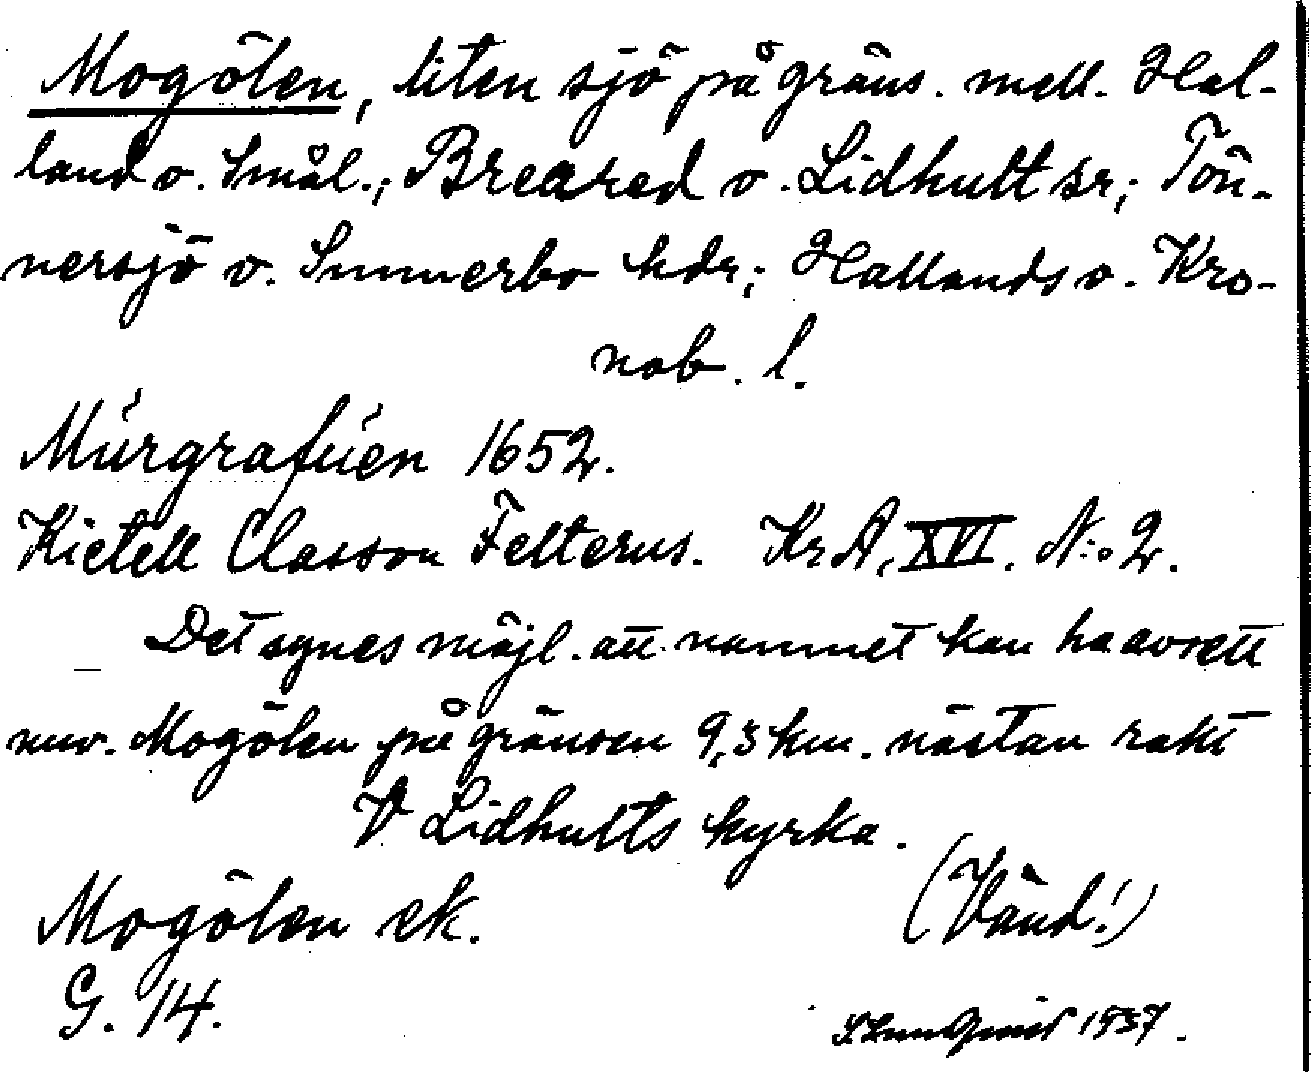 Mogölen, liten sjö på gräns. mell. Hal-
land o. Smål.; Breared o. Lidhult sr; Tön-
nersjö o. Sunnerbo hdr; Hallands o. Kro-
nob. l.
Múrgrafúen 1652.
Kietell Classon Felterus. KrA, XVI. N:o 2.
Det synes möjl. att namnet kan ha avsett
nuv. Mogölen på gränsen 9,3 km. nästan rakt
V Lidhults kyrka.
Mogölen ek. (Vänd!)
G. 14.
1937.